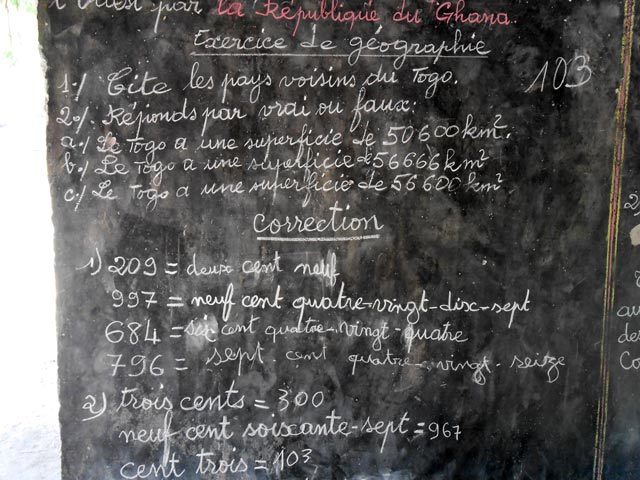 l'Ouest par la République du Ghana.
Exercice de géographie
1./ Cite les pays voisins du Togo. 103
2./ Réponds par vrai ou faux:
a./ Le Togo a une superficie de 50600 km².
b./ Le Togo a une superficie de 56666 km²
c./ Le Togo a une superficie de 56600 km².
Correction
1) 209 = deux cent neuf
997 = neuf cent quatre-vingt-disc-sept
684 = six cent quatre-vingt-quatre
796 = sept cent quatre-vingt-seitze
2) trois cents = 300
neuf cent soixante-sept = 967
cent trois = 103